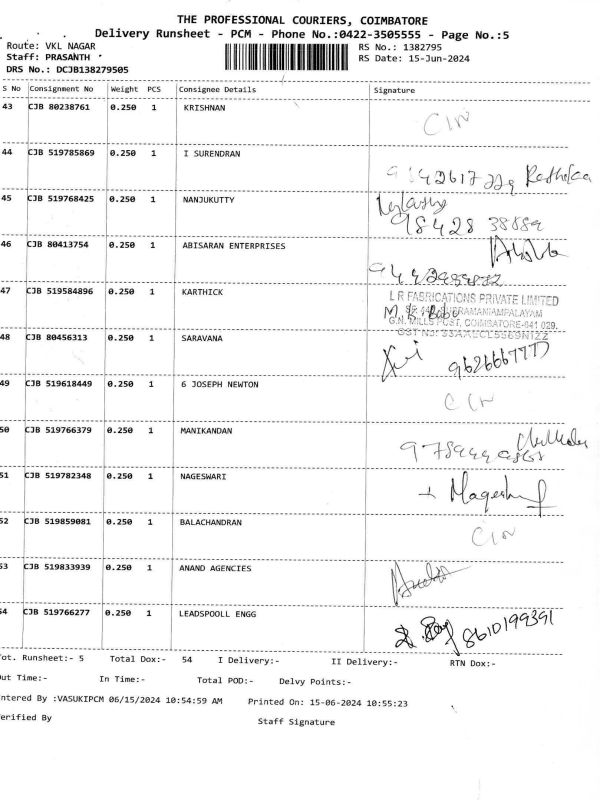 THE PROFESSIONAL COURIERS, COIMBATORE
Delivery Runsheet - PCM - Phone No.:0422-3505555 - Page No.:5
Route: VKL NAGAR RS No.: 1382795
Staff: PRASANTH RS Date: 15-Jun-2024
DRS No.: DCJB138279505
S No Consignment No Weight PCS Consignee Details Signature
43 CJB 80238761 0.250 1 KRISHNAN
44 CJB 519785869 0.250 1 I SURENDRAN
45 CJB 519768425 0.250 1 NANJUKUTTY
98428 38889
46 CJB 80413754 0.250 1 ABISARAN ENTERPRISES
47 CJB 519584896 0.250 1 KARTHICK
L R FABRICATIONS PRIVATE LIMITED
G.N. MILLS POST, COIMBATORE-641 029.
48 CJB 80456313 0.250 1 SARAVANA
9626667777
49 CJB 519618449 0.250 1 6 JOSEPH NEWTON
50 CJB 519766379 0.250 1 MANIKANDAN
51 CJB 519782348 0.250 1 NAGESWARI
52 CJB 519859081 0.250 1 BALACHANDRAN
53 CJB 519833939 0.250 1 ANAND AGENCIES
54 CJB 519766277 0.250 1 LEADSPOOLL ENGG
8610199391
Tot. Runsheet:- 5 Total Dox:- 54 I Delivery:- II Delivery:- RTN Dox:-
Out Time:- In Time:- Total POD:- Delvy Points:-
ntered By :VASUKIPCM 06/15/2024 10:54:59 AM Printed On: 15-06-2024 10:55:23
erified By Staff Signature